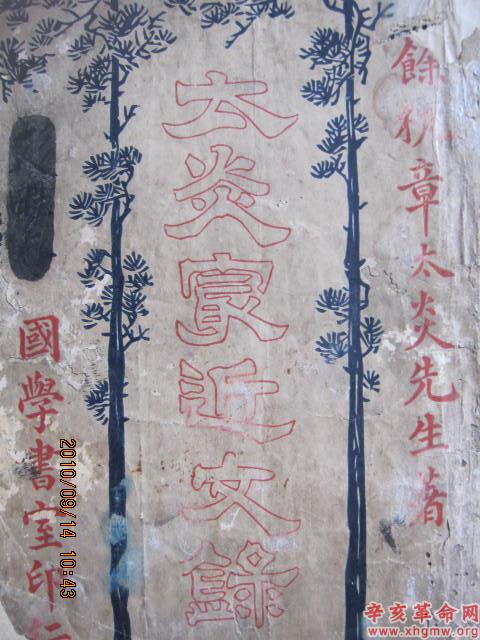 餘杭章太炎先生著
太炎㝡近文錄
國學書室印行
2010/09/14 10:43
辛亥革命网
www.xhgmw.org